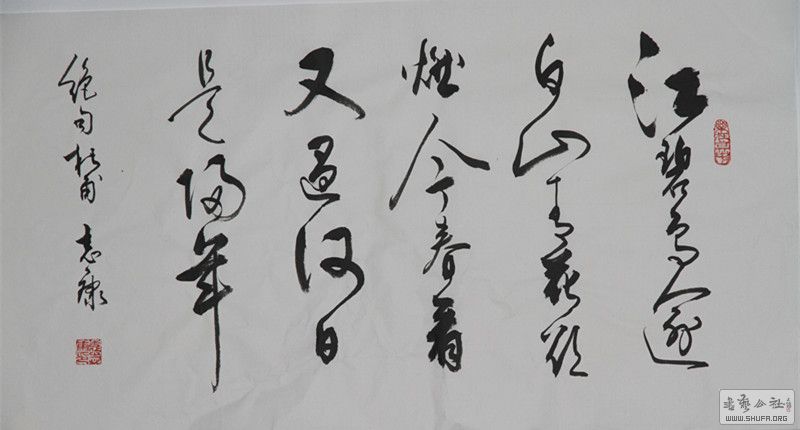 江碧鸟逾
白山青花欲
燃今春看
又過何日
是歸年
絕句杜甫 志康
書藝公社
WWW.SHUFA.ORG